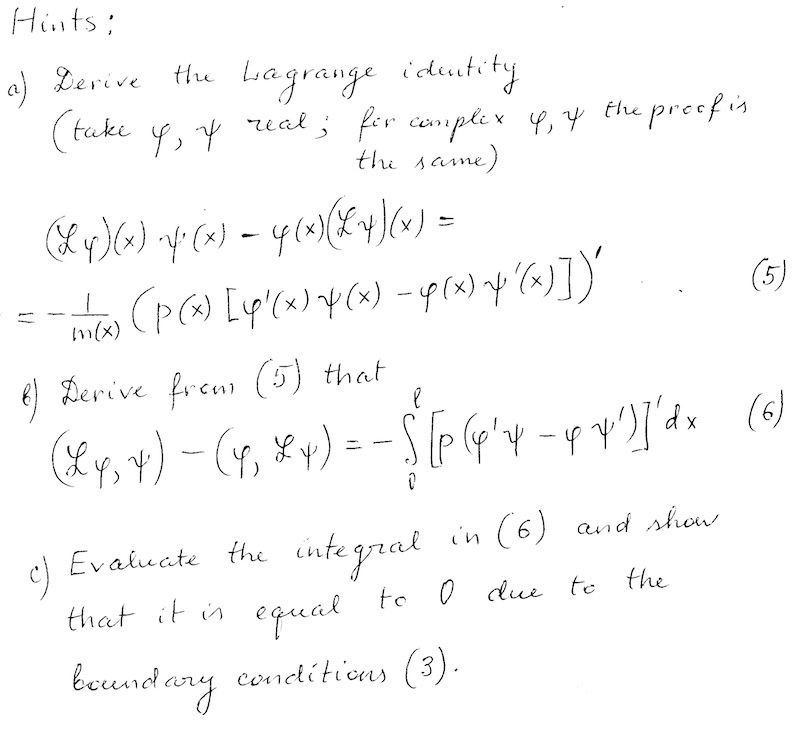 Hints:
a) Derive the Lagrange identity
(take φ, ψ real; for complex φ, ψ the proof is
the same)
(ℒφ)(x) ψ(x) − φ(x)(ℒψ)(x) =
= − 1/m(x) (p(x) [φ'(x) ψ(x) − φ(x) ψ'(x)])' . . (5)
b) Derive from (5) that
(ℒφ, ψ) − (φ, ℒψ) = − ∫₀ˡ [p(φ'ψ − φψ')]' dx (6)
c) Evaluate the integral in (6) and show
that it is equal to 0 due to the
boundary conditions (3).